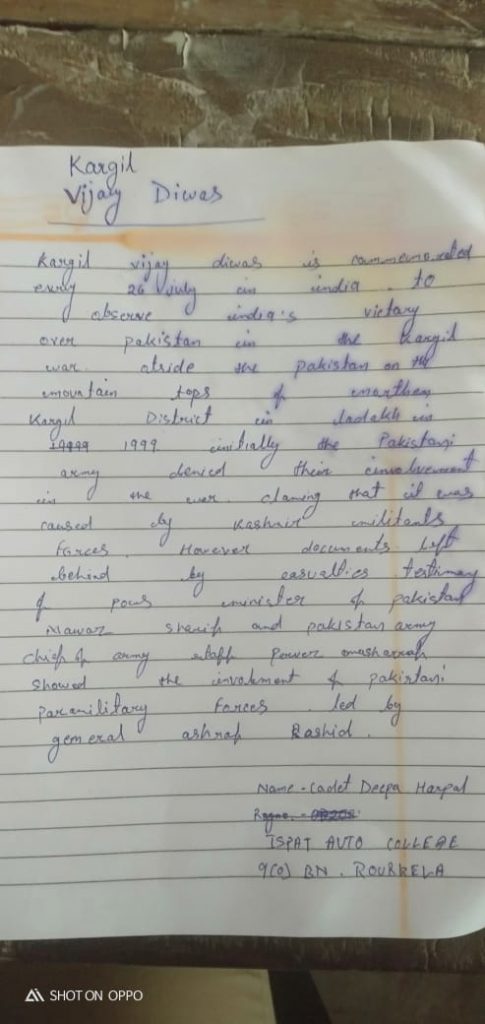 Kargil
Vijay Diwas
Kargil vijay diwas is commemorated
every 26 july in india. to
observe india's victary
over pakistan in the kargil
war. atride the pakistan on the
mountain tops of northen
Kargil District in ladakh in
1999 initially the Pakistani
army denied their involvement
in the war. claming that it was
caused by Kashmir militants
forces. However documents left
behind by casualties testimay
of pows minister of pakistan
Nawaz sharif and pakistan army
chief of army staff Power musharraf
showed the involment of pakistani
paramilitary forces. led by
general ashraf Rashid.
Name - Cadet Deepa Harpal
ISPAT AUTO COLLEGE
9(O) BN. ROURKELA
SHOT ON OPPO